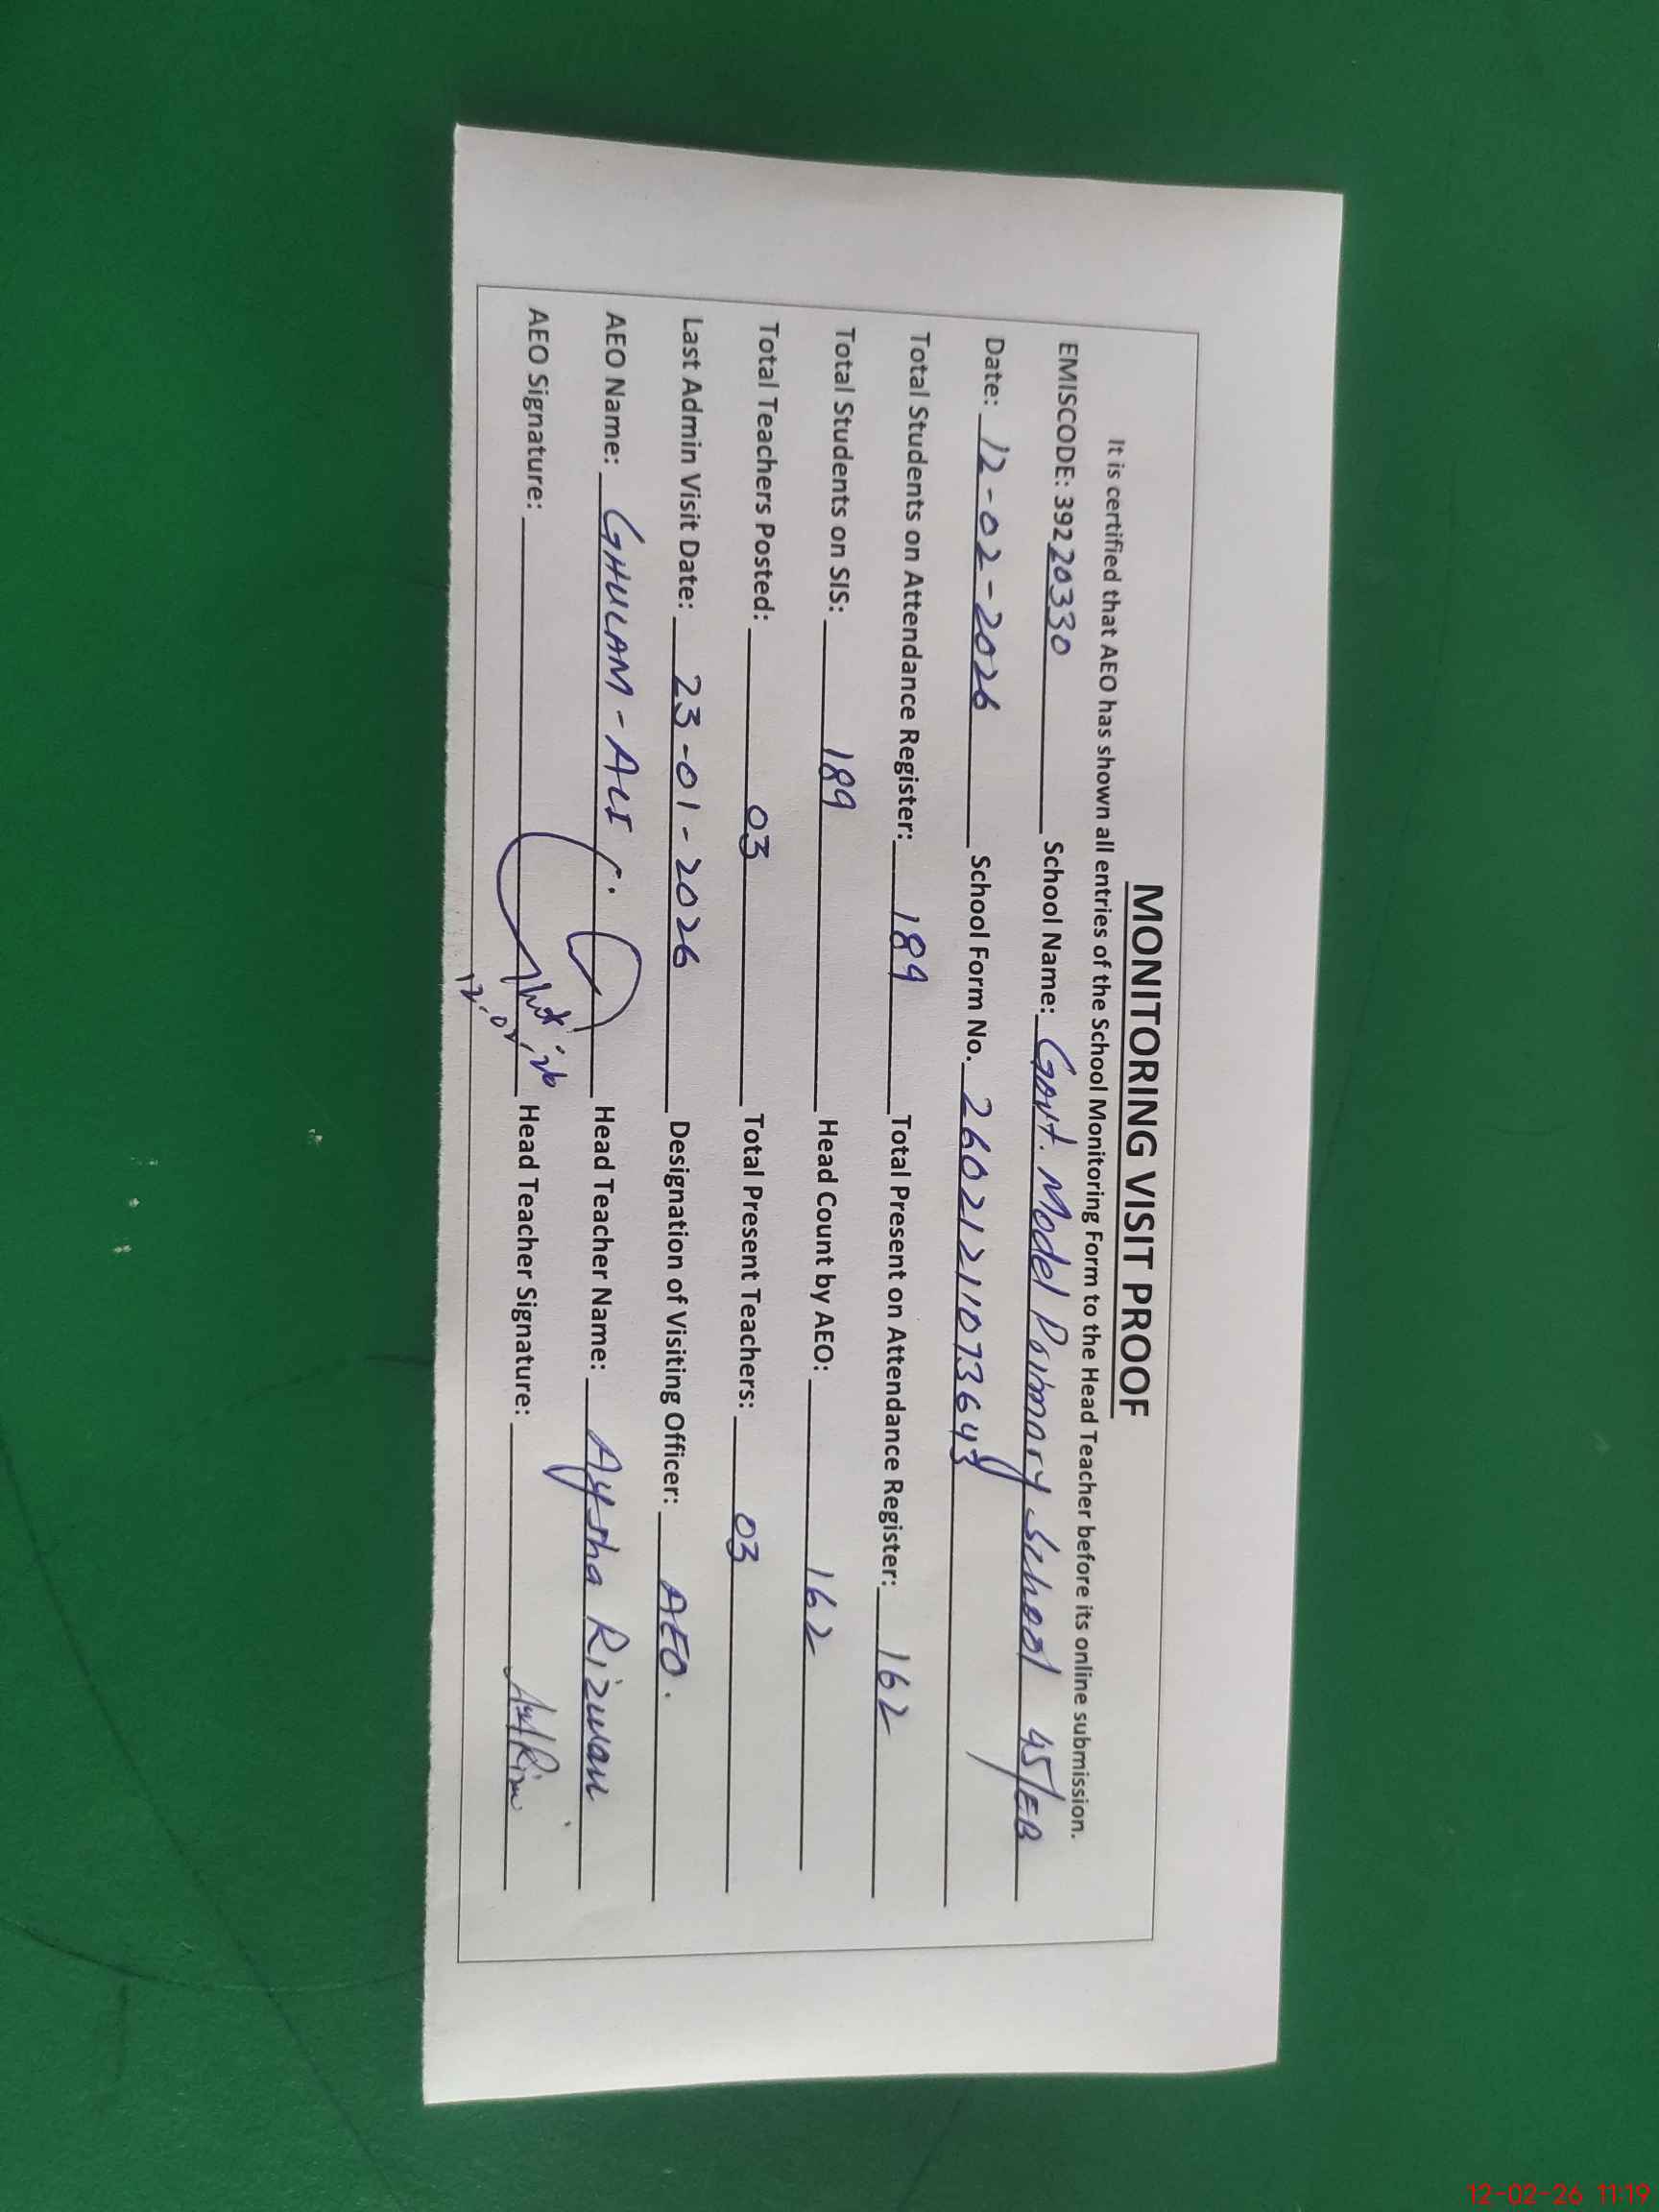 MONITORING VISIT PROOF
It is certified that AEO has shown all entries of the School Monitoring Form to the Head Teacher before its online submission.
EMISCODE: 39220330 School Name: Govt. Model Primary School 45/EB
Date: 12-02-2026 School Form No. 26021211073643
Total Students on Attendance Register: 189 Total Present on Attendance Register: 162
Total Students on SIS: 189 Head Count by AEO: 162
Total Teachers Posted: 03 Total Present Teachers: 03
Last Admin Visit Date: 23-01-2026 Designation of Visiting Officer: AEO.
AEO Name: GHULAM-ALI Head Teacher Name: Aysha Rizwan
AEO Signature: Head Teacher Signature:
12-02-26 11:19